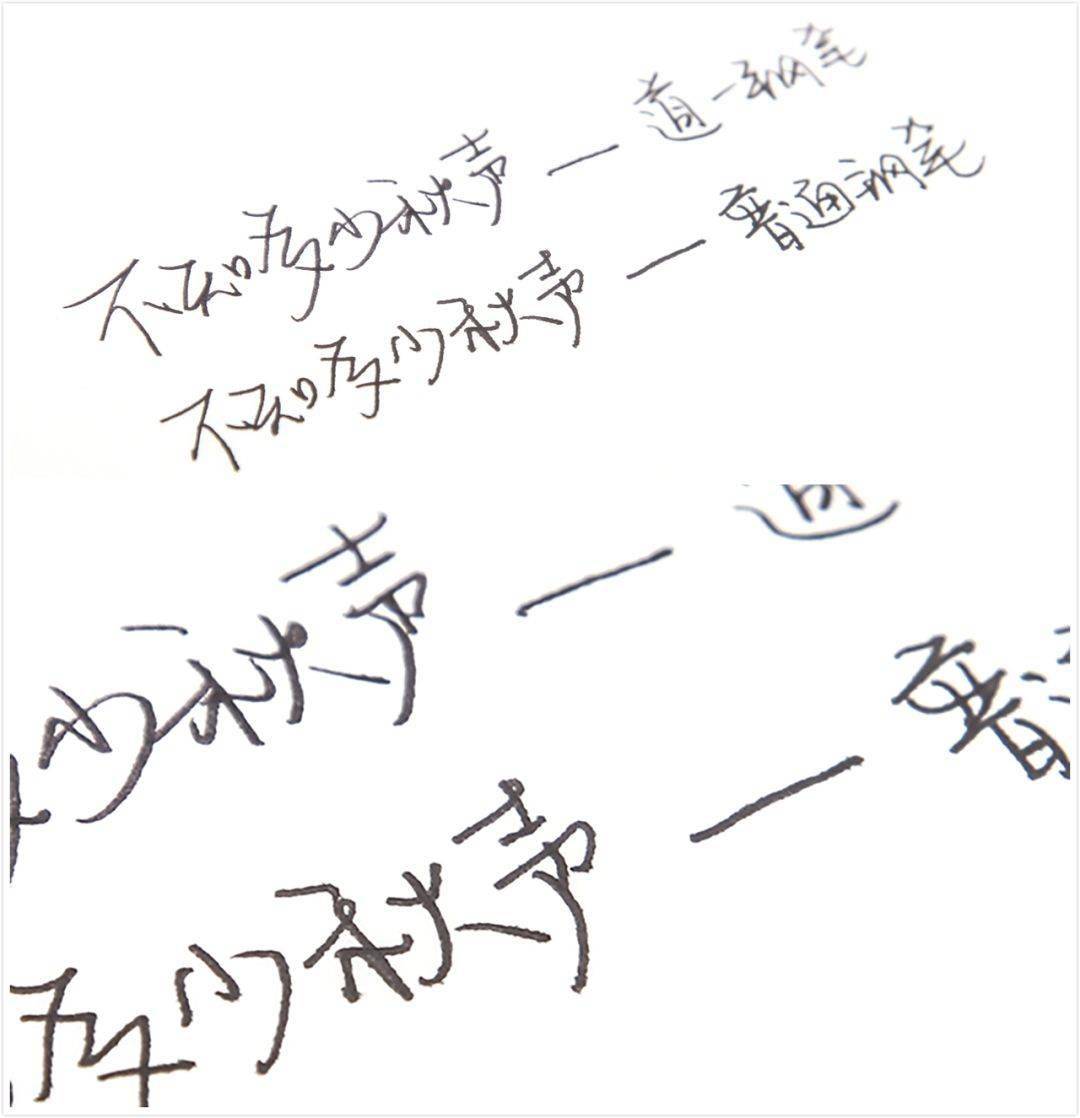 不知多少秋声 — 道一钢笔
不知多少秋声 — 普通钢笔
少秋声 —
多少秋声 — 普